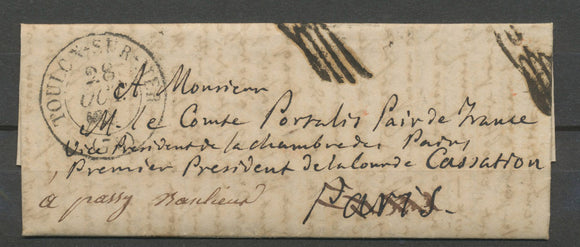 TOULON-SUR-MER
28
OCT
A Monsieur
M. le Comte Portalis Pair de France
Vice Président de la chambre des Pairs
Premier Président de la Cour de Cassation
a passy banlieue Paris.